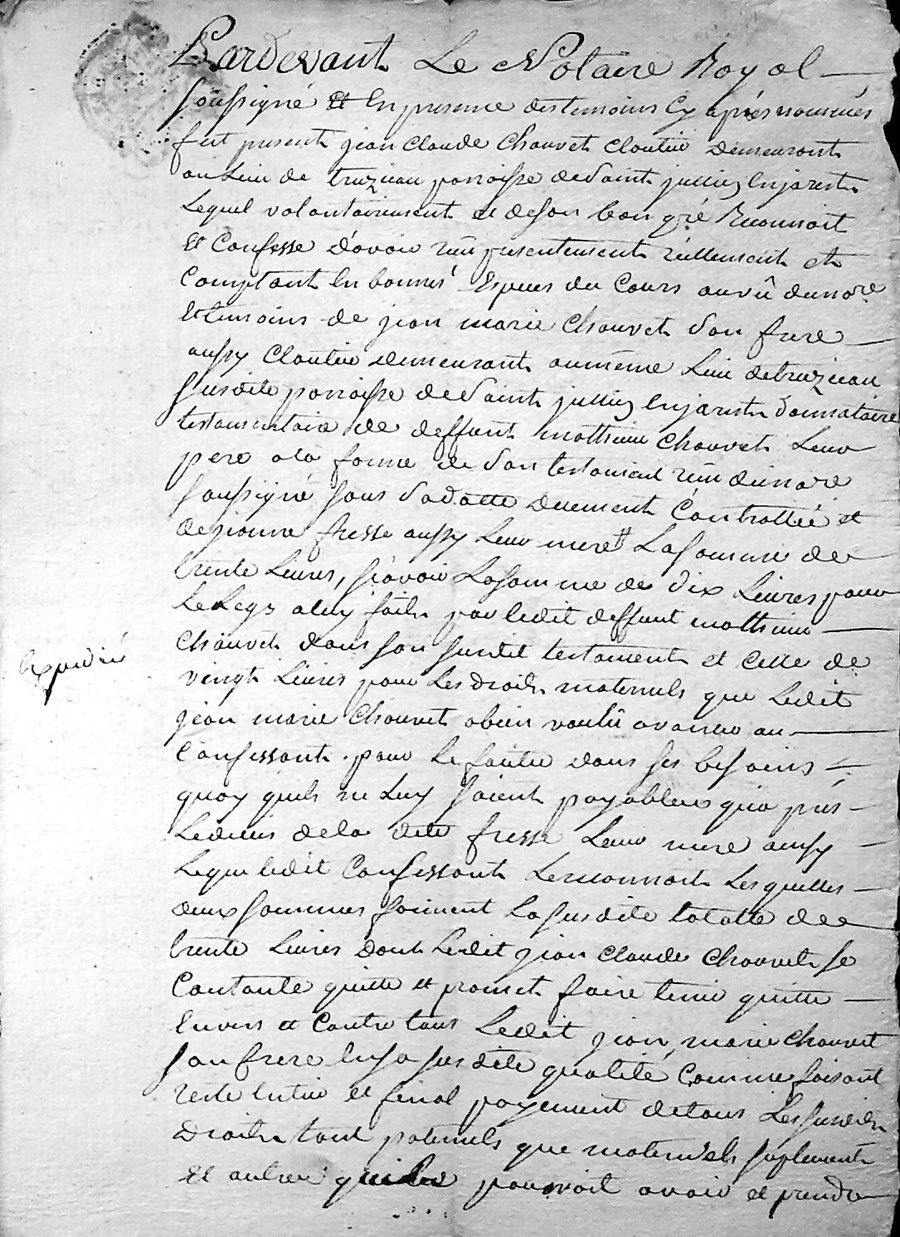 Pardevant Le Notaire Royal
soussigné Et En presence des temoins Cy après nommés
fut present jean Claude Chauvet Cloutier demeurant
au Lieu de truzieau parroisse de Saint jullien Enjarest
Lequel volontairement et deson bon gré Reconnoit
Et Confesse d'avoir reçu presentement réellement et
Comptant En bonnes Especes du Cours au vû du no.re
Et temoins de jean marie Chauvet Son frere
aussy Cloutier demeurant au même Lieu de truzieau
susdite parroisse de Saint jullien Enjarest donnataire
testamentaire de deffunt matthieu Chauvet Leur
pere a la forme de Son testament reçu du no.re
soussigné sous Sa datte duement Controllée et
de jeanne fresse aussy Leur mere La somme de
trente Livres, sçavoir La somme de dix Livres pour
Le Legs a luy fait par ledit deffunt matthieu
Chauvet dans son susdit testament et Celle de
vingt Livres pour Les droits maternels que Ledit
jean marie Chauvet a bien voulû avancer au
Confessant pour Le faire dans ses besoins
quoy quils ne Luy soient payables qu'a près
Le deces de la dite fresse Leur mere ainsy
Le que ledit Confessant Le reconnoit Lesquelles
deux sommes forment La susdite totalle de
trente Livres dont Ledit jean Claude Chauvet se
Contante quitte et promet faire tenir quitte
Envers et Contre tous Ledit jean marie Chauvet
son frere En sa susdite qualité Comme faisant
reste Entier et final payement de tous Les susdits
Droits tant paternels que maternels suplement
Et autres quil pourroit avoir et prendre
Expedié